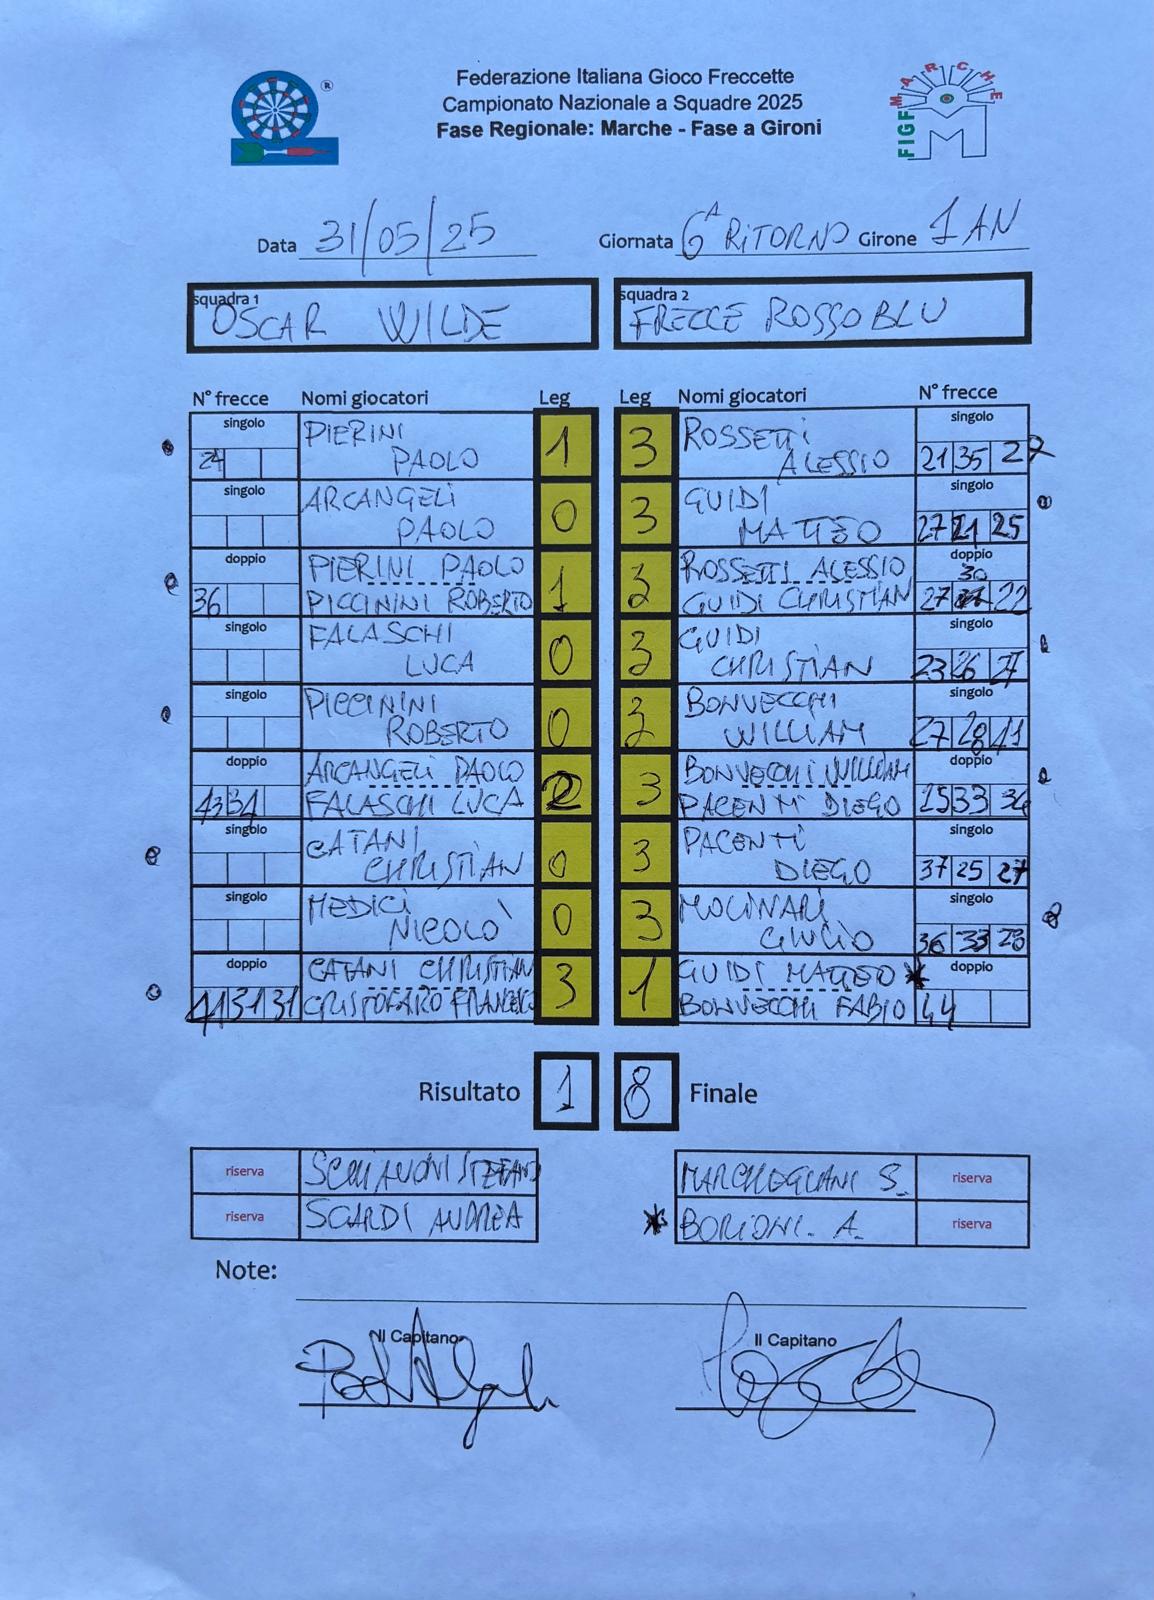 Federazione Italiana Gioco Freccette
Campionato Nazionale a Squadre 2025
Fase Regionale: Marche - Fase a Gironi
FIGF MARCHE
M
®
Data 31/05/25 Giornata 6ª RITORNO Girone 1 AN
squadra 1 squadra 2
OSCAR WILDE FRECCE ROSSOBLU
N° frecce Nomi giocatori Leg Leg Nomi giocatori N° frecce
singolo PIERINI 1 3 ROSSETTI singolo
24 PAOLO ALESSIO 21 35 27
singolo ARCANGELI 0 3 GUIDI singolo
PAOLO MATTEO 27 21 25
doppio PIERINI PAOLO 1 3 ROSSETTI ALESSIO doppio
30
36 PICCININI ROBERTO GUIDI CHRISTIAN 27 22
singolo FALASCHI 0 3 GUIDI singolo
LUCA CHRISTIAN 23 26 27
singolo PICCININI 0 3 BONVECCHI singolo
ROBERTO WILLIAM 27 28 41
doppio ARCANGELI PAOLO 2 3 BONVECCHI WILLIAM doppio
43 34 FALASCHI LUCA PACENTI DIEGO 25 33 36
singolo CATANI 0 3 PACENTI singolo
CHRISTIAN DIEGO 37 25 27
singolo MEDICI 0 3 MOLINARI singolo
NICOLO' GIULIO 36 33 28
doppio CATANI CHRISTIAN 3 1 GUIDI MATTEO * doppio
41 31 31 CRISTOFARO FRANCESCO BONVECCHI FABIO 44
Risultato 1 8 Finale
riserva SCHIAVONI STEFANO MARCHEGIANI S. riserva
riserva SGARDI ANDREA * BORIONI. A. riserva
Note:
Il Capitano Il Capitano